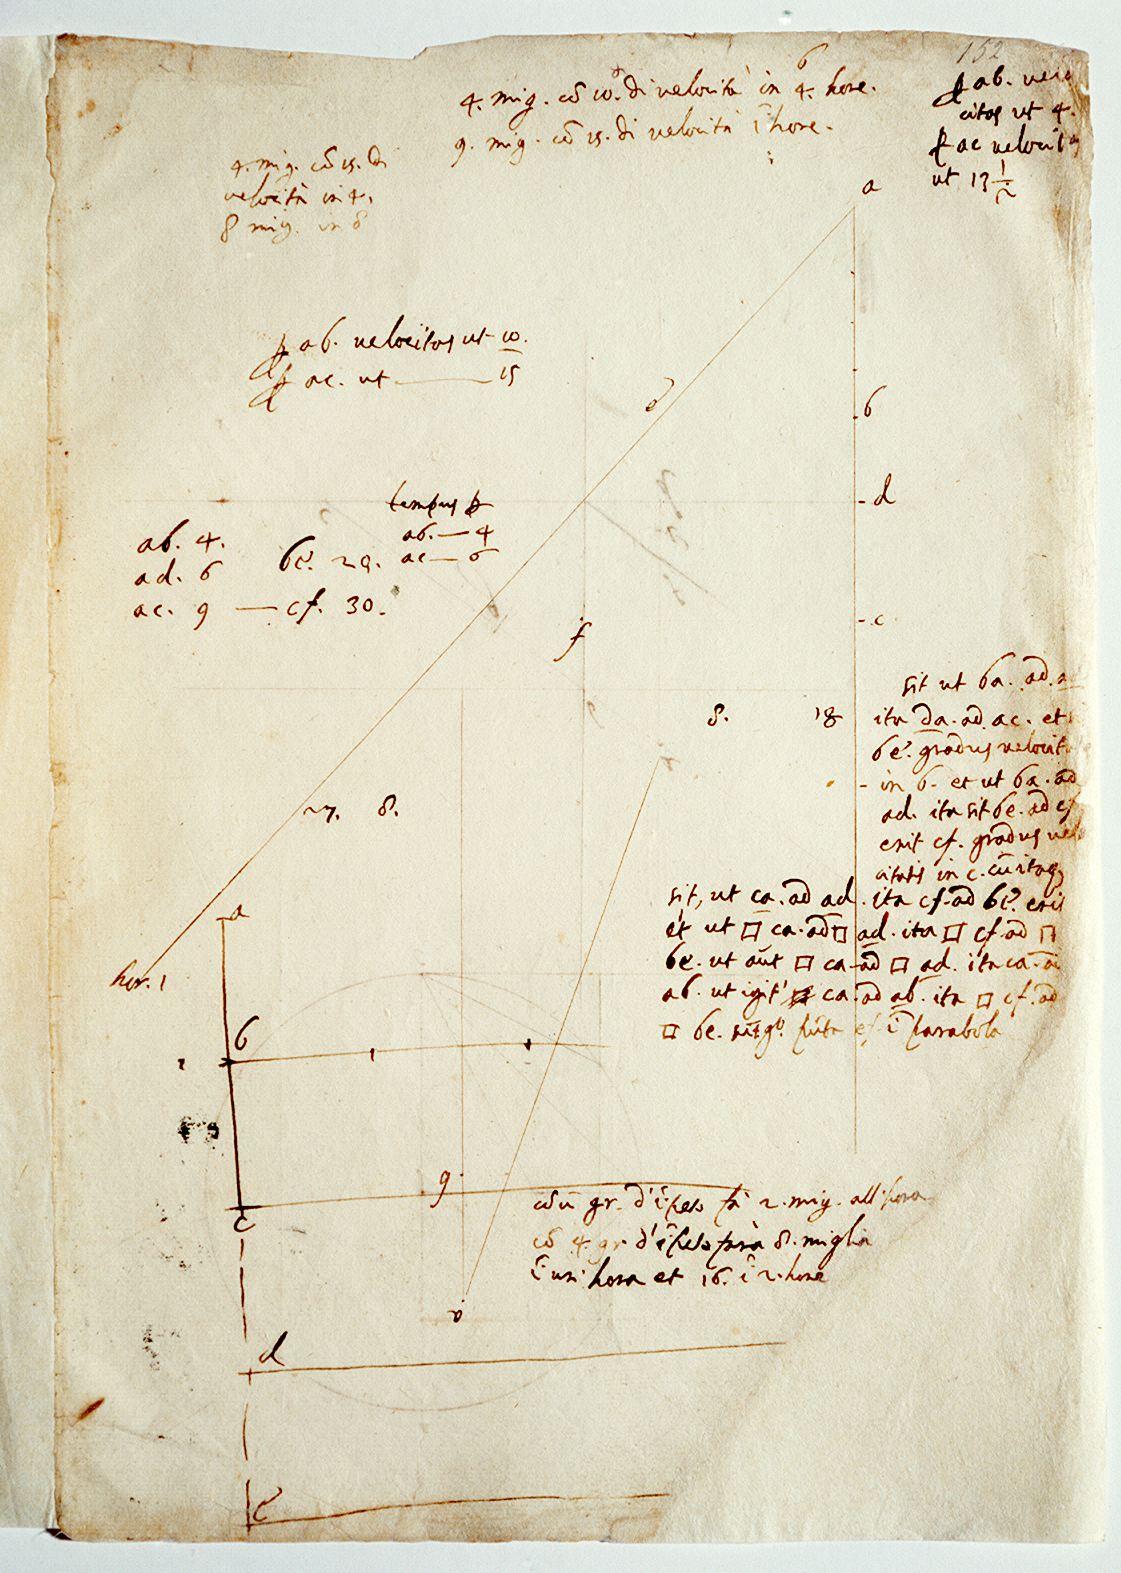 152
4. mig. cõ 10. di velocità in 4. hore.
6
9. mig. cõ 15. di velocità ĩ hore.
ab. velo
citas ut 4.
ac velocit
ut 13 1/2
4. mig. cõ 15. di
velocità in 4.
8 mig. in 8
a
ab. velocitas ut 10.
ac. ut — 15
e
b
d
c
tempus
ab. — 4
ac — 6
ab. 4.
ad. 6 be. 20.
ac. 9 — cf. 30.
f
8. 18
27. 8.
sit ut ba. ad
ita da. ad ac. et
be. gradus velocit
in b. et ut ba. ad
ad. ita sit be. ad cf
erit cf. gradus vel
citatis in c. cũ itaq
sit, ut ca. ad ad. ita cf. ad be. eri
et ut □ ca. ad □ ad. ita □ cf. ad □
be. ut aũt □ ca. ad □ ad. ita ca. a
ab. ut igit' ca. ad ab. ita □ cf. ad
□ be. ĩ parabola
a
hor. 1
b
c
g
cõ u gr. d'ĩpeto fà 2. mig. all'hora
cõ 4. gr. d'ĩpeto farà 8. miglia
ĩ un hora et 16. ĩ 2. hore
d
e